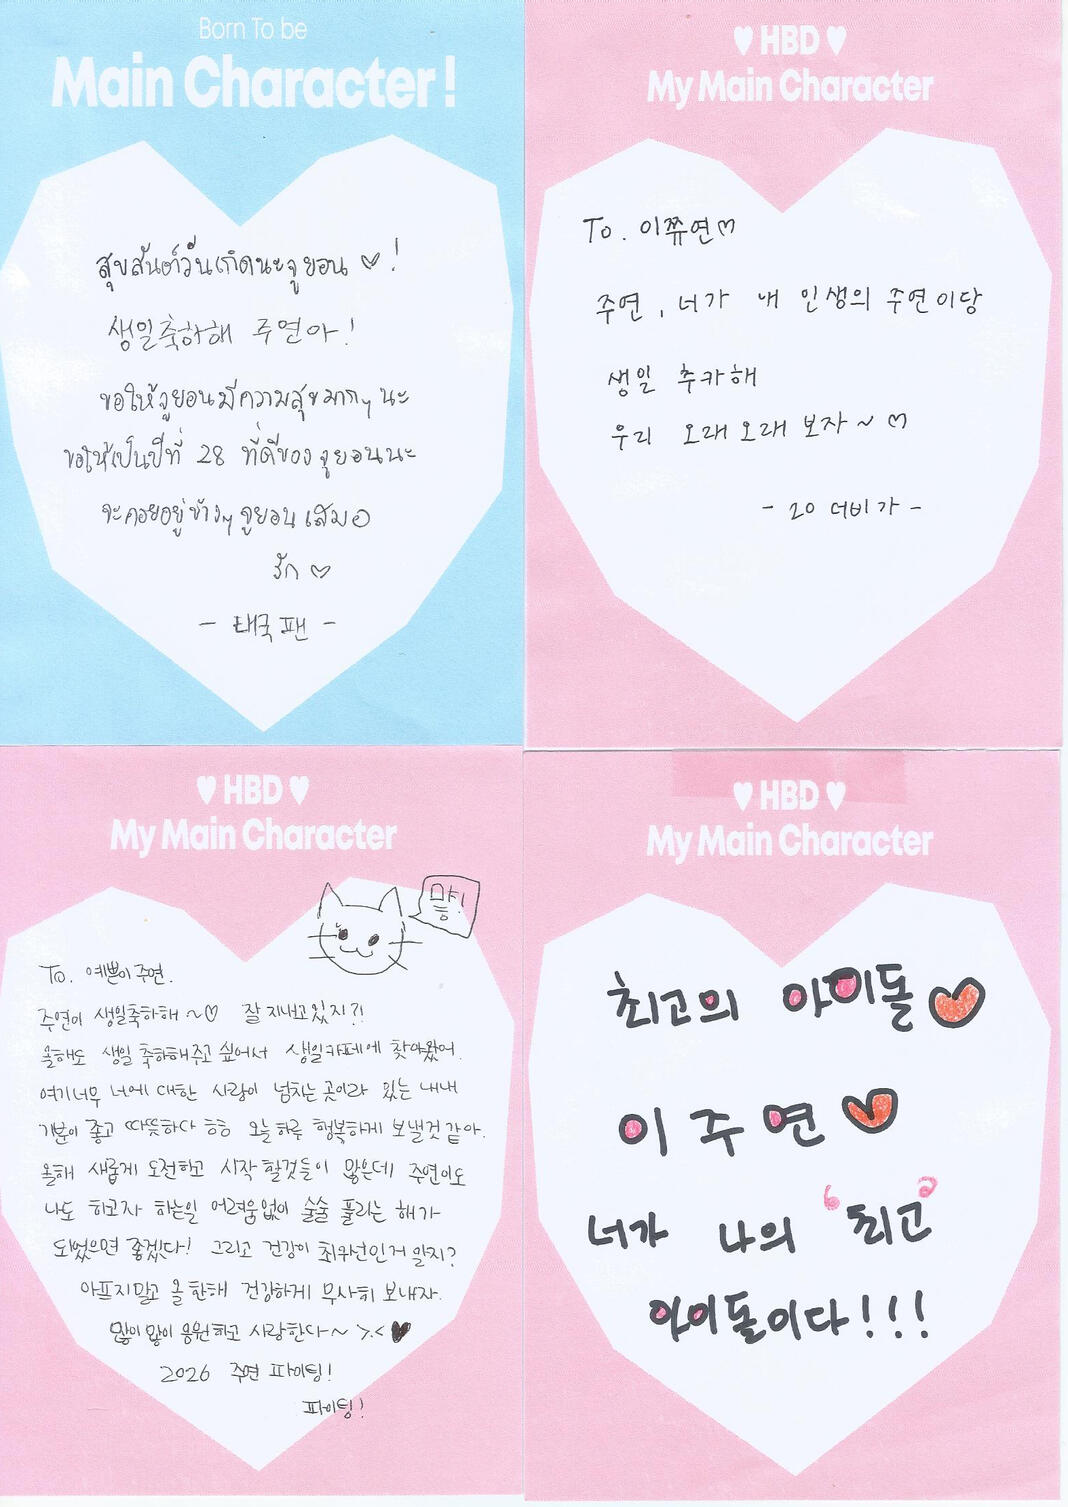 Born To be
Main Character!
สุขสันต์วันเกิดนะจูยอน ♡!
생일축하해 주연아!
ขอให้จูยอนมีความสุขมากๆ นะ
ขอให้เป็นปีที่ 28 ที่ดีของจูยอนนะ
จะคอยอยู่ข้างๆ จูยอนเสมอ
รัก ♡
- 태국 팬 -
♥ HBD ♥
My Main Character
To. 이쮸연♡
주연, 너가 내 인생의 주연이당
생일 추카해
우리 오래오래 보자~♡
- 20 더비가 -
♥ HBD ♥
My Main Character
To. 예쁜이 주연.
주연이 생일축하해~♡ 잘 지내고있지?!
올해도 생일 축하해주고 싶어서 생일카페에 찾아왔어.
여기너무 너에 대한 사랑이 넘치는 곳이라 있는 내내
기분이 좋고 따뜻하다 ㅎㅎ 오늘 하루 행복하게 보낼것 같아.
올해 새롭게 도전하고 시작 할것들이 많은데 주연이도
나도 하고자 하는일 어려움없이 술술 풀리는 해가
되었으면 좋겠다! 그리고 건강이 최우선인거 알지?
아프지말고 올 한해 건강하게 무사히 보내자.
많이 많이 응원하고 사랑한다~ >.< ♥
2026 주연 파이팅!
파이팅!
♥ HBD ♥
My Main Character
최고의 아이돌♡
이주연♡
너가 나의 "최고"
아이돌이다!!!